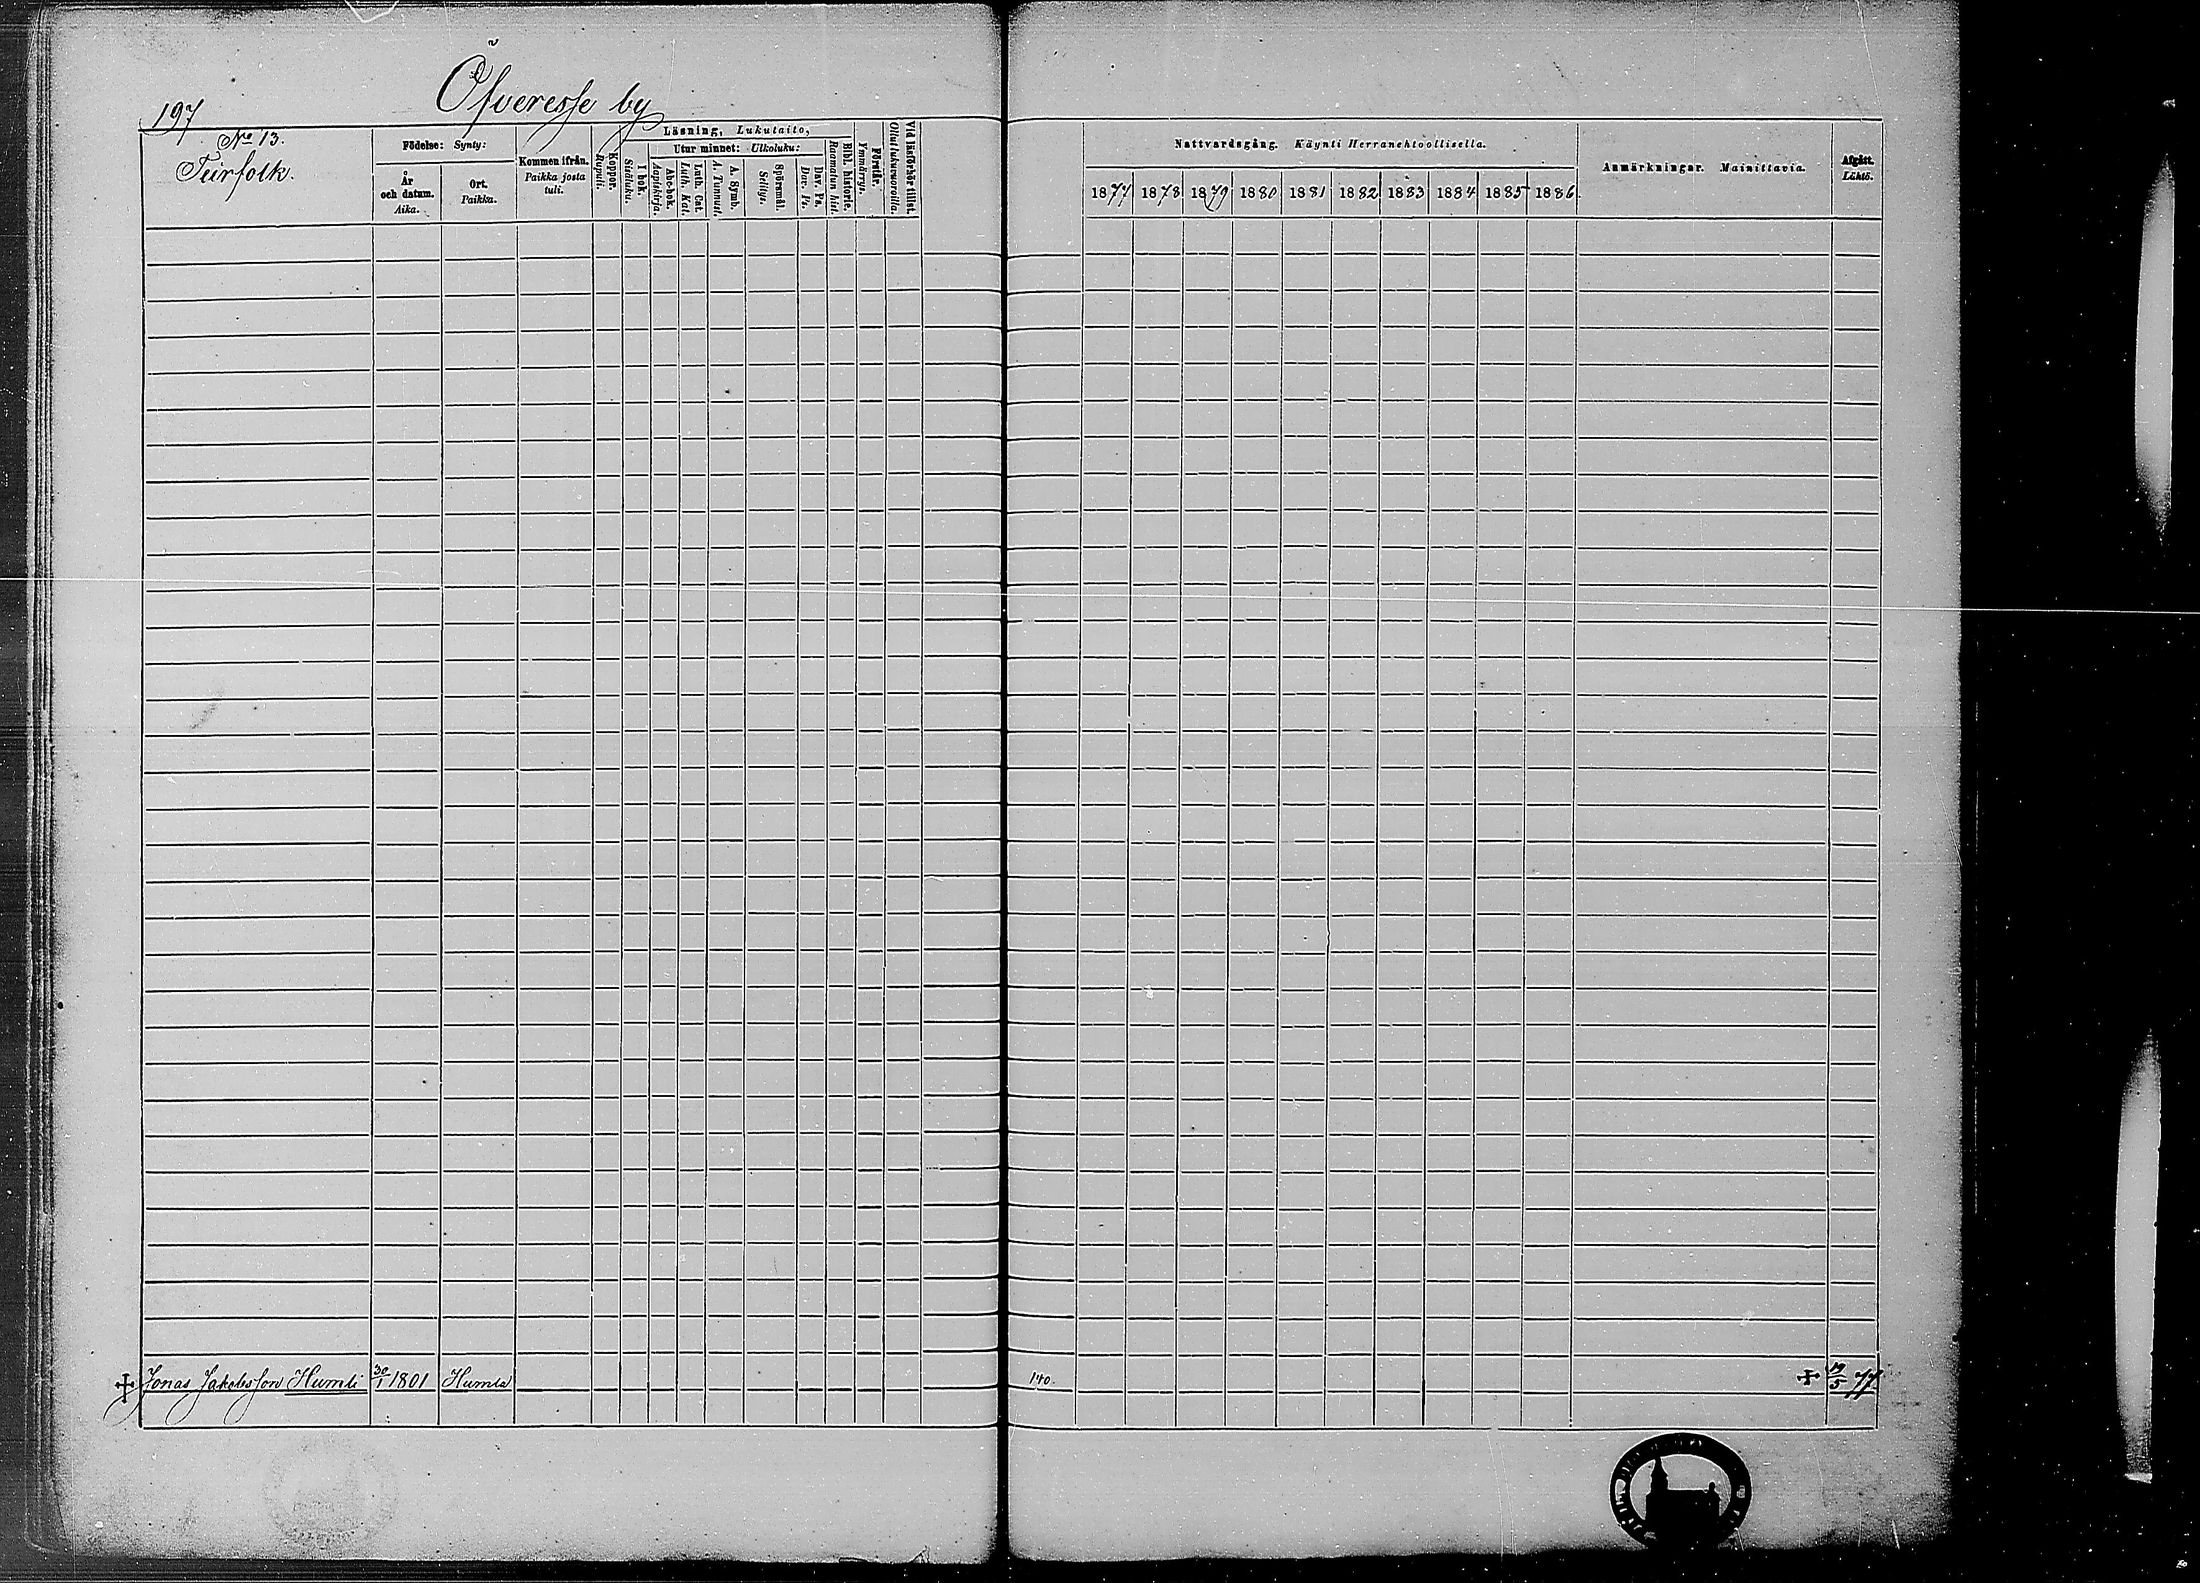 Öfveresse by
197
No 13.
Teirfolk.
Födelse: Synty:
År och datum. Aika.
Ort. Paikka.
Kommen ifrån. Paikka josta tuli.
Koppor. Rupuli.
Läsning, Lukutaito,
I bok. Sisäluku.
Utur minnet: Ulkoluku:
Abc-bok. Aapiskirja.
Luth. Cat. Luth. Kat.
A. Symb. A. Tunnust.
Spörsmål. Selitys.
Dav. Ps. Dav. Ps.
Bibl. historie. Raamatun hist.
Förstår. Ymmärrys.
Vid läsförhör tillst. Ollut lukuwuoroilla.
Nattvardsgång. Käynti Herranehtoollisella.
1877 1878 1879 1880 1881 1882 1883 1884 1885 1886
Anmärkningar. Mainittavia.
Afgått. Lähtö.
Jonas Jakobsson Humli 30/1 1801 Humla 140. 19/5 77